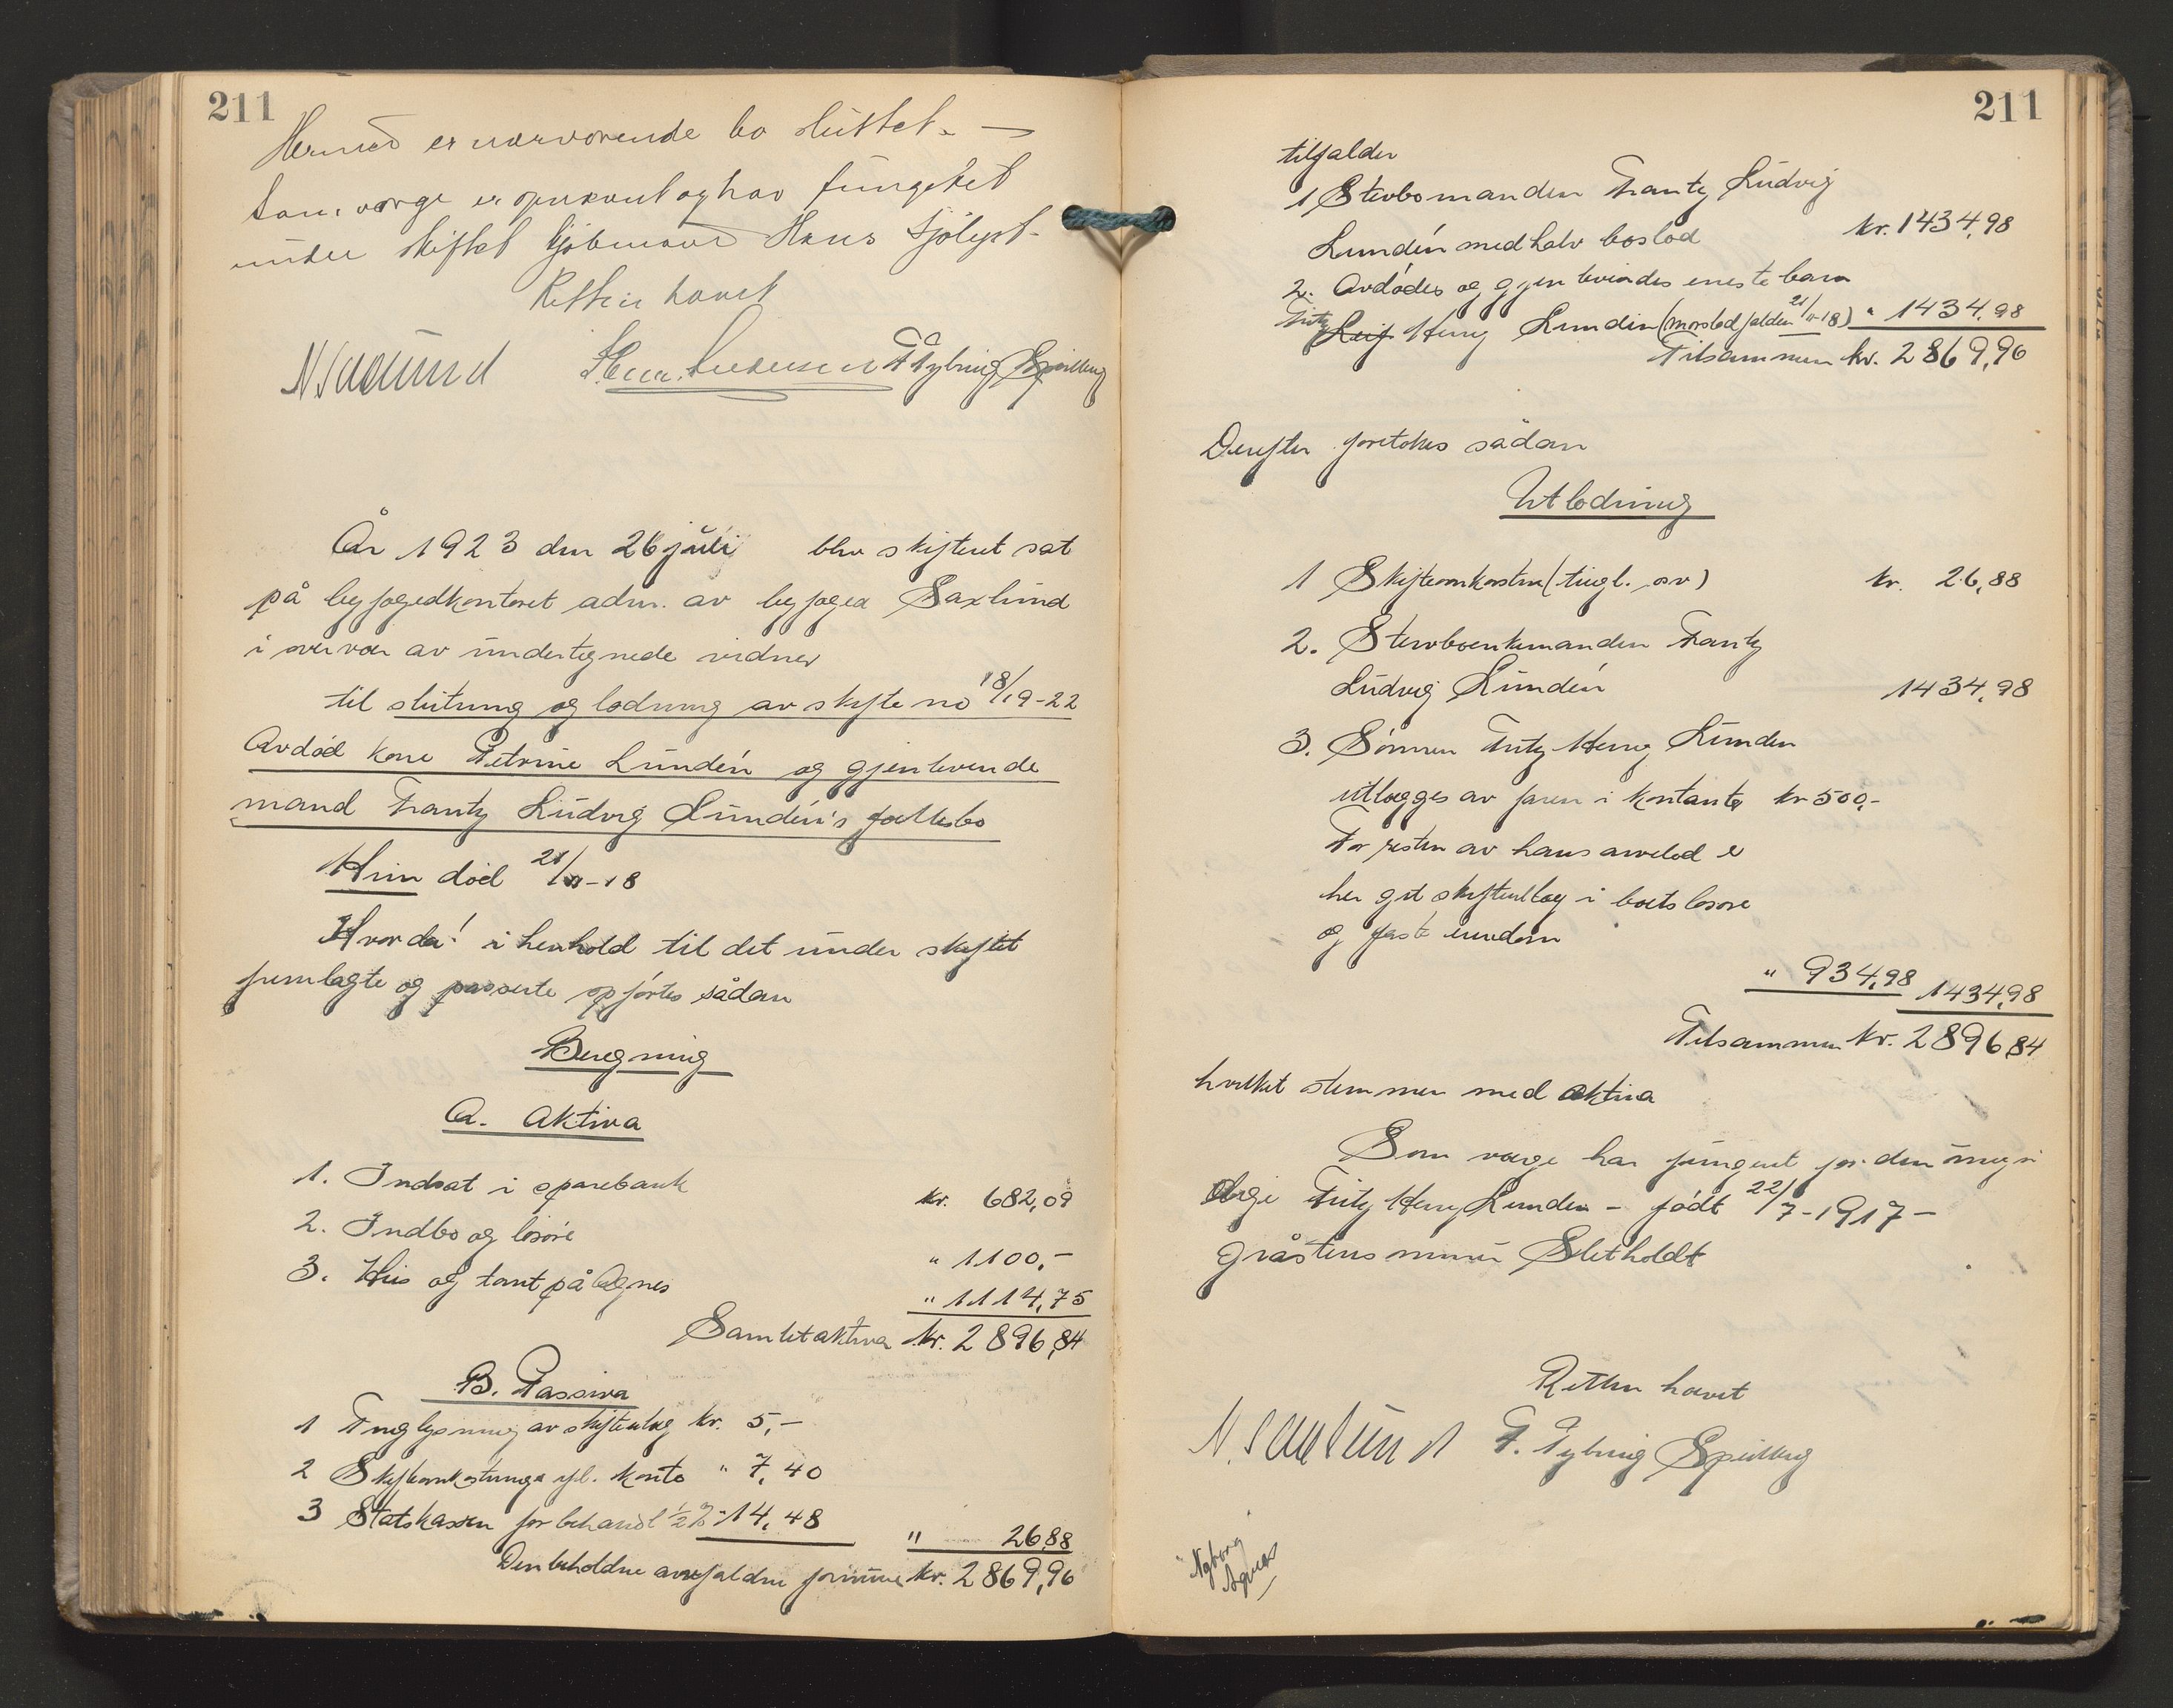 211
Hermed er nærværende bo sluttet. —
Som verge er opnævnt og har fungeret
under skiftet kjøbmand Hans Sjølyst.
Retten hævet
N Saxlund F Tybring Spilling
År 1923 den 26 juli blev skifteret sat
på byfogedkontoret adm. av byfoged Saxlund
i overvær av undertegnede vidner
til slutning og lodning av skifte no 18/19-22
Avdød kone Petrine Lundén og gjenlevende
mand Frantz Ludvig Lundén's fællesbo
Hun død 21/11-18
Hvorda! i henhold til det under skiftet
fremlagte og passerte opførtes sådan
Beregning
A. Aktiva
1. Indsat i sparebank kr. 682,09
2. Indbo og løsøre " 1100,-
3. Hus og tomt på Agnes " 1114,75
Samlet aktiva kr. 2896,84
B. Passiva
1 Tinglysning av skifteutlæg kr. 5,-
2 Skifteomkostninger ifl. konto " 7,40
3 Statskassen for behandl ½ % " 14,48 " 26,88
Den beholdne arvefaldne formue kr. 2869,96
211
tilfalder
1 Stervbomanden Frantz Ludvig
Lundén med halv boslod kr. 1434,98
2. Avdødes og gjenlevendes eneste barn
Fritz Leif Henry Lundén (morslod falden 21/11-18) " 1434,98
Tilsammen kr. 2869,96
Derefter foretokes sådan
Utlodning
1 Skifteomkostn (tingl. osv) kr. 26,88
2. Stervboenkemanden Frantz
Ludvig Lundén 1434,98
3. Sønnen Fritz Henry Lunden
utlægges av faren i kontanter kr 500,-
For resten av hans arvelod er
her git skifteutlæg i boets løsøre
og faste eiendom
" 934,98 1434,98
Tilsammen kr. 2896,84
hvilket stemmer med aktiva
Som verge har fungeret for den umyn
dige Fritz Henry Lunden - født 22/7-1917 -
gråstensmurer Sletholdt
Retten hævet
N. Saxlund F. Tybring Spilling
"Nyborg
Agnes